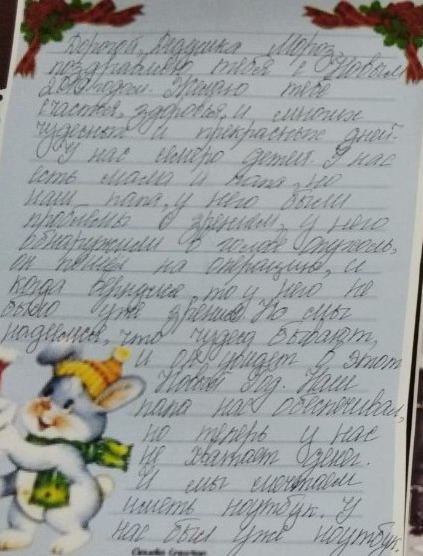 Дорогой, Дедушка Мороз,
поздравляю тебя с Новым
годом. Желаю тебе
счастья, здоровья, и многих
чудесных и прекрасных дней.
У нас четверо детей. У нас
есть мама и папа, но
наш папа, у него были
проблемы с зрением, у него
обнаружили в голове опухоль,
он пошёл на операцию, и
когда вернулся то у него не
было уже зрение. Но мы
надеемся, что чудеса бывают,
и он увидет в этот
Новый Год. Наш
папа нас обеспечивал,
но теперь у нас
не хватает денег.
И мы мечтаем
иметь ноутбук. У
нас был уже ноутбук,